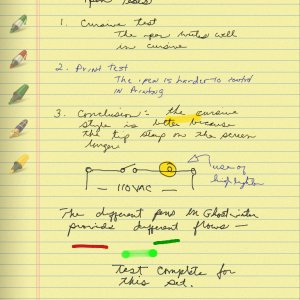 Pen Tests
1. Cursive test
The pen writes well
in cursive
2. Print test
The pen is harder to control
in Printing
3. Conclusion: the cursive
style is better because
the tip stay on the screen
longer
use of
highlighter
110 VAC
The different pens in Ghostwriter
provides different flows —
Test complete for
this set.